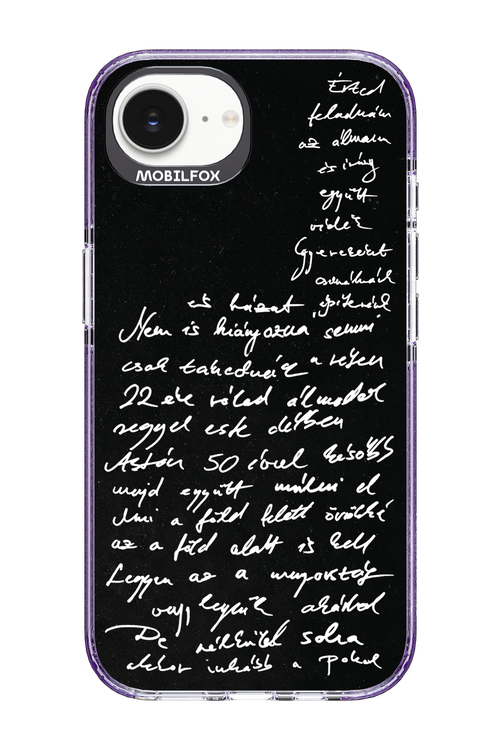 MOBILFOX
Érted
feladnám
az álmaim
és így
együtt
Gyerekeket
csinálnánk
és házat építenénk
Nem is hiányozna semmi
csak takednák a
22 éve rólad álmodok
reggel este délben
Aztán 50 évvel később
majd együtt múlni el
Ami a föld felett örökké
az a föld alatt is kell
Legyen az a mennyország
vagy legyünk akárhol
De nélküled soha
akkor inkább a Pokol